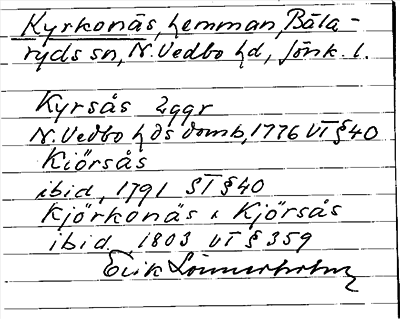 Kyrkonäs, hemman, Båla-
ryds sn, N. Vedbo hd, Jönk. l.
Kyrsås 2ggr
N. Vedbo hds domb, 1776 VT § 40
Kiörsås
ibid, 1791 ST § 40
Kjörkonäs & Kjörsås
ibid 1803 VT § 359
Erik Lönnerholm